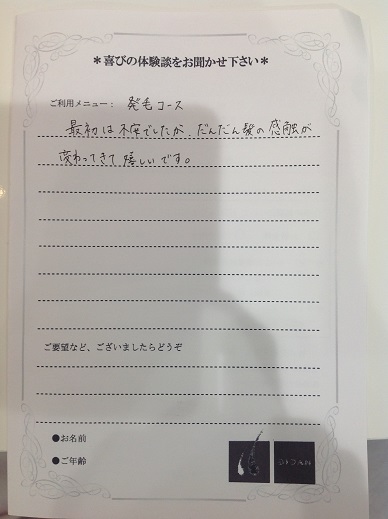 ＊喜びの体験談をお聞かせ下さい＊
ご利用メニュー： 発毛コース
最初は不安でしたが、だんだん髪の感触が
変わってきて嬉しいです。
ご要望など、ございましたらどうぞ
●お名前
●ご年齢